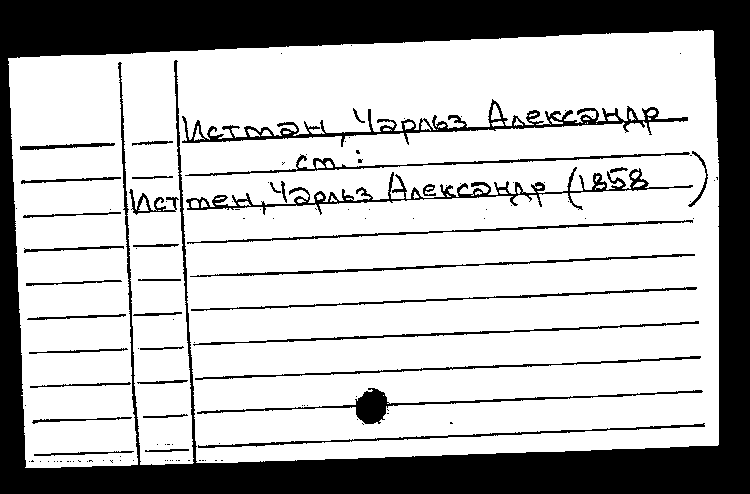 Истман, Чарльз Александр
ст.:
Истмен, Чарльз Александр (1858 )